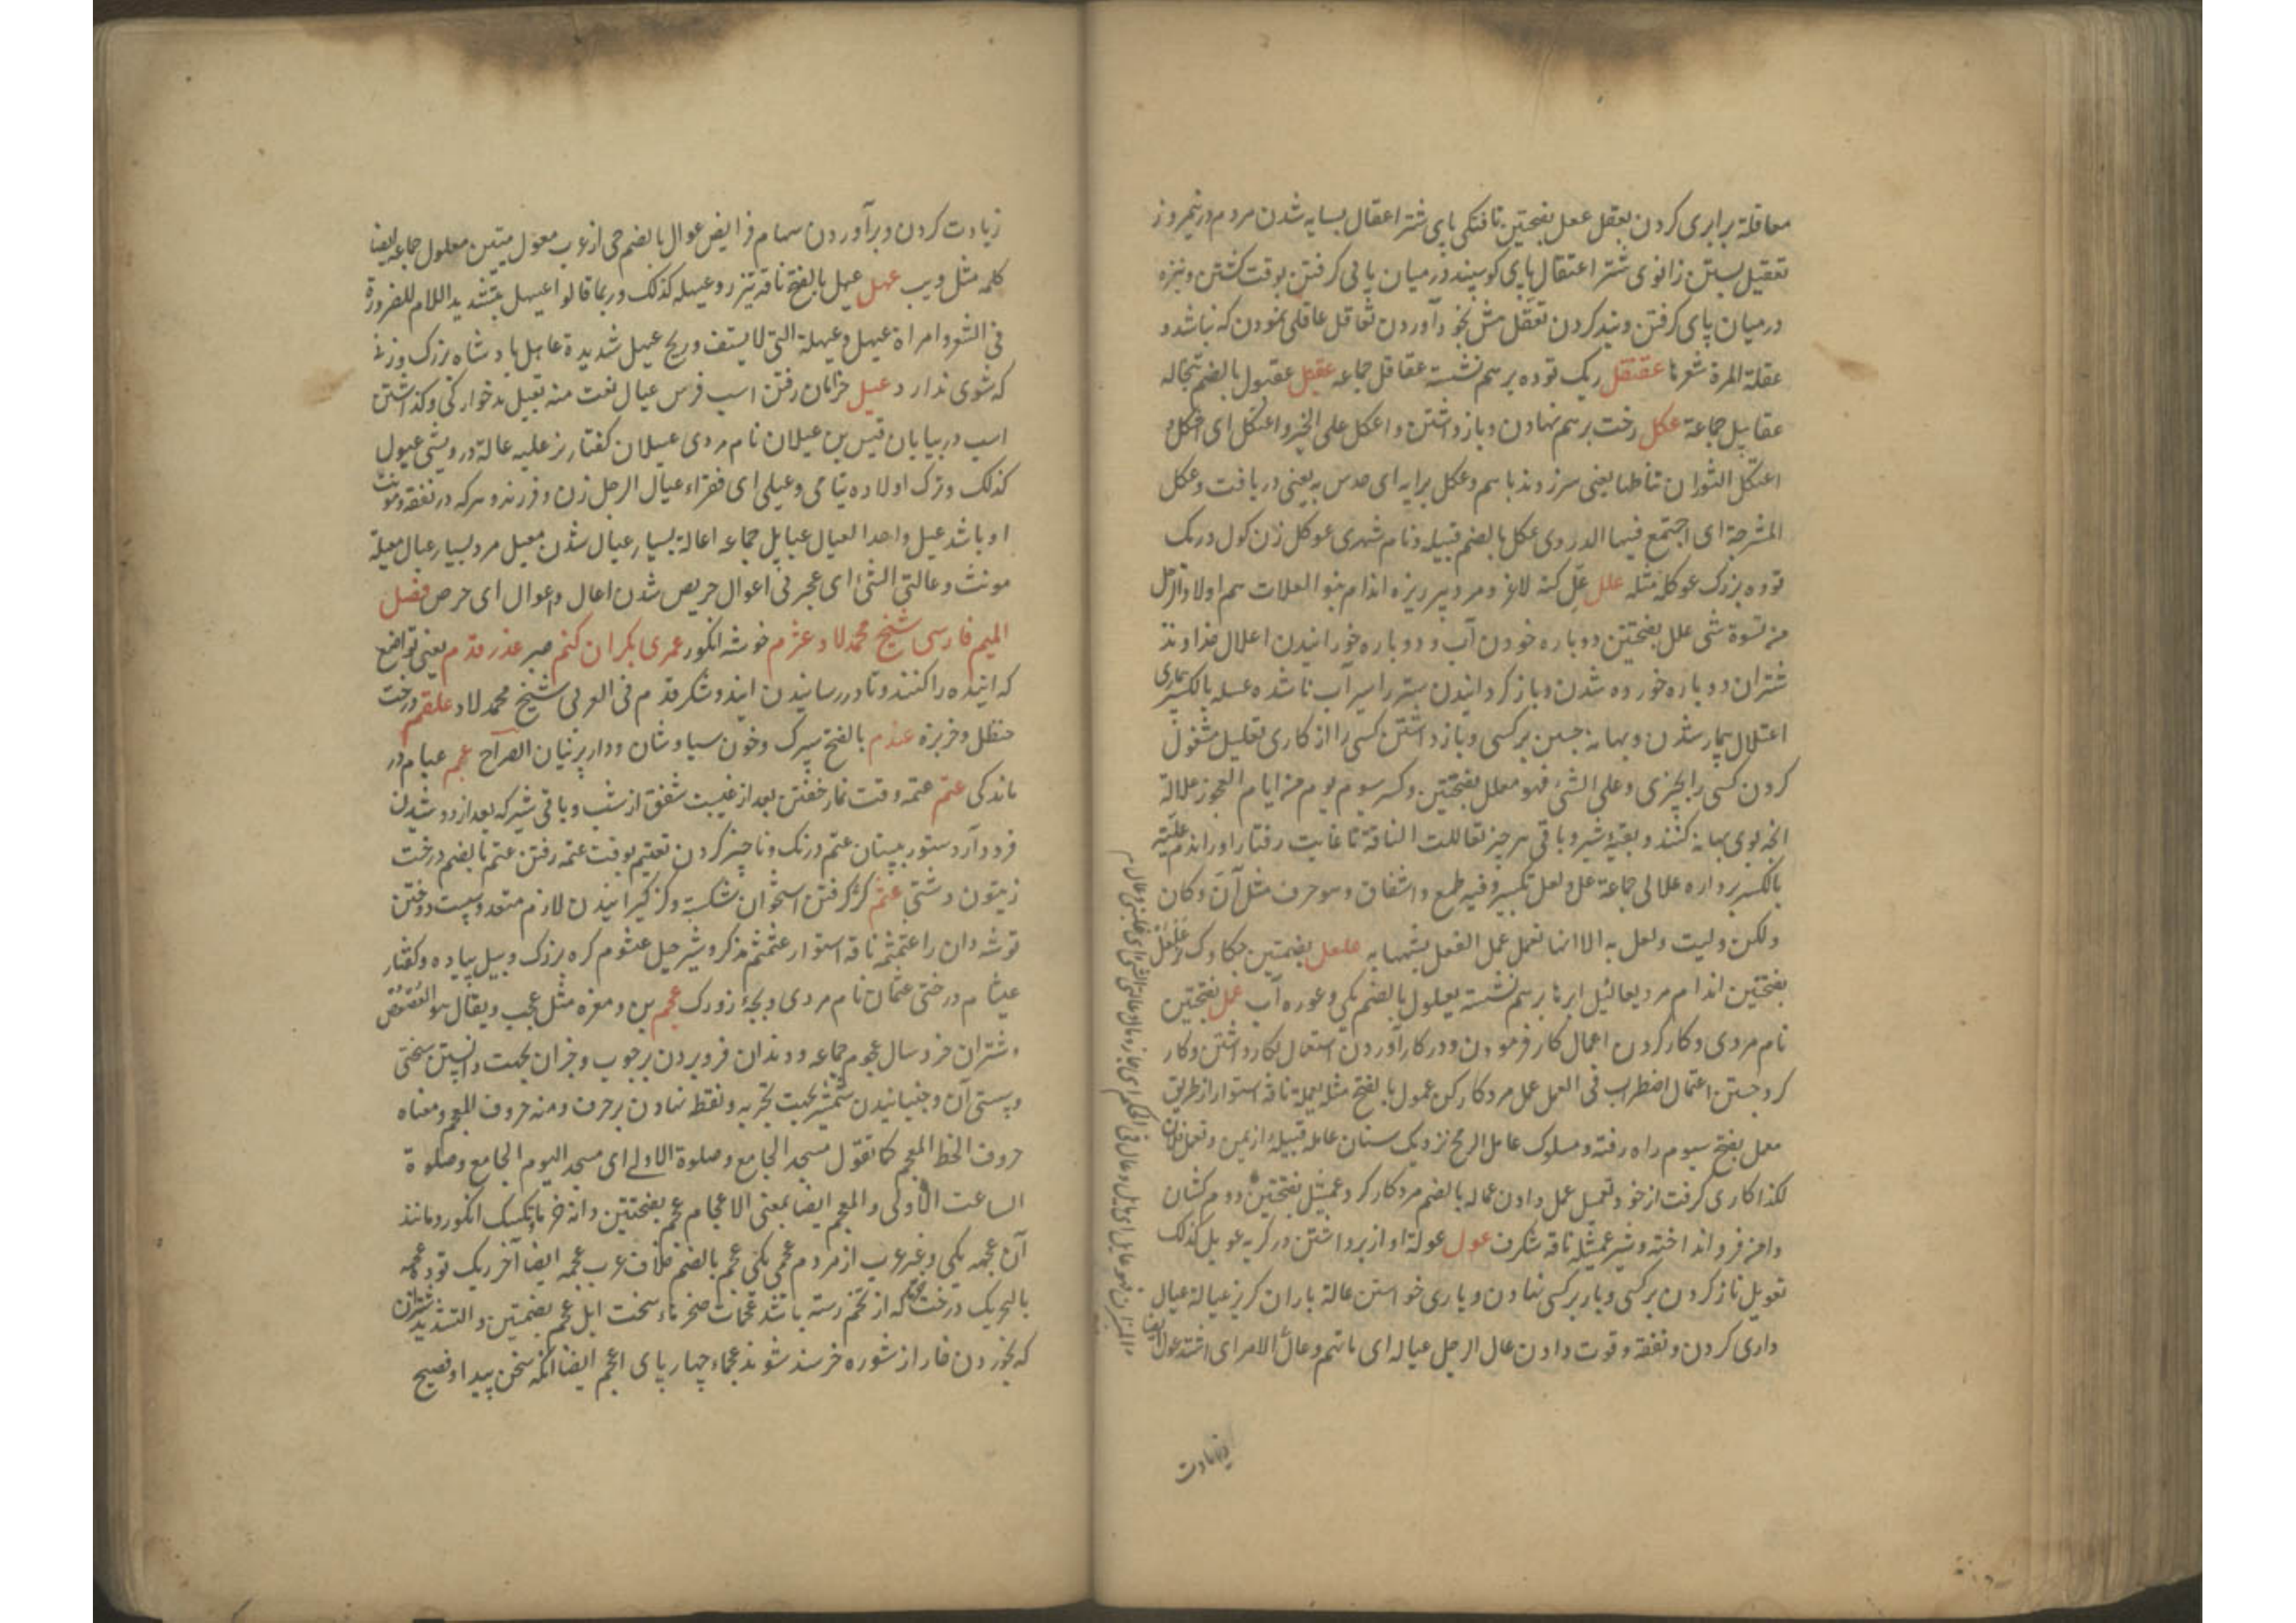 معاقلة برابری کردن بعقل عقل بفتحتین تافتکی پای شتر اعتقال بسایه شدن مردم در نیمروز
تعقیل بستن زانوی شتر اعتقال پای کوسپند در میان پا فی کرفتن بوقت کشتن و نیزه
در میان پای کرفتن و بند کردن تعقل مثل بخود آوردن تعاقل عاقلی نمودن که نباشد و
عقلة المرة شعرها عقنقل ریک توده برهم نشسته عقاقل جماعه عقبل عقبول بالضم تبخاله
عقابیل جماعة عکل رخت برهم نهادن و بازداشتن و اعکل علی الخبر و اعتکل ای اشکل و
اعتکل الثوران تناطحا یعنی سرزدند باهم و عکل برایه ای حدس به یعنی دریافت و عکل
المشرجة ای اجتمع فیها الدردی عکل بالضم قبیله و نام شهری عوکل زن کول و ریک
توده بزرک عوکله مثله علل عل کنه لاغر و مرد پیر ریزه اندام بنو العلات هم اولاد الرجل
من نسوة شتی علل بفتحتین دوباره خوردن آب و دوباره خورانیدن اعلال خداوند
شتران دوباره خورده شدن و باز کردانیدن شتر را سیرآب ناشده عله بالکسر بیماری
اعتلال بیمار شدن و بهانه جستن بر کسی و باز داشتن کسی را از کاری تعلیل مشغول
کردن کسی را بچیزی و علی الشئ فهو معلل بفتحتین و کسر سیوم یوم من ایام العجوز علالة
انچه بوی بهانه کنند و بقیه شیر و باقی هر چیز تعاللت الناقة تا غایت رفتار او راندم علیه
بالکسر برواره علالی جماعة عل و لعل تکسیر و فیه طمع و اشفاق و هو حرف مثل آن و کان
ولکن ولیت ولعل به الا انها تعمل عمل الفعل بشبهها به علعل بضمتین چکاوک نر علعل
بفتحتین اندام مرد یعالیل ابرها برهم نشسته یعلول بالضم یکی و غوره آب عمل بفتحتین
نام مردی و کار کردن اعمال کار فرمودن و در کار آوردن استعمال بکار داشتن و کار
کرد جستن اعتمال اضطراب فی العمل عمل مرد کارکن عمول بالفتح مثله یعملة ناقه استوار از طریق
معمل بفتح سیوم راه رفته و مسلوک عامل الرمح نزدیک سنان عامله قبیله از یمن و تعمل فلان
لکذا کاری کرفت از خود تعمیل عمل دادن عماله بالضم مرد کارکرد عمیثل بفتحتین دوم کشان
دامن فرو انداخته و شیر عمیثله ناقه شکرف عول عولة آواز برداشتن در کریه عویل کذلک
تعویل ناز کردن بر کسی و بار بر کسی نهادن و یاری خواستن عالة باران کریز عیالة عیال
داری کردن و نفقه و قوت دادن عال الرجل عیاله ای مانهم و عال الامر ای اشتد عول ایضا
زیادت
زیادت کردن و برآوردن سهام فرایض عوال بالضم حی از عرب معول میتین معلول جماعه ایضا
کلمه مثل ویب عهل عیهل بالفتح ناقه تیزرو عیهله کذلک و ربما قالوا عیهل بتشدید اللام للضرورة
فی الشعر و امراة عیهل و عیهلة التی لا یستقر و ریح عیهل شدیدة عاهل پادشاه بزرک و زنی
که شوی ندارد عیل خرامان رفتن اسب فرس عیال نعت منه تعییل بدخوارکی و کذاشتن
اسب در بیابان قیس بن عیلان نام مردی عیلان کفتار نر علیه عالة درویشی عیول
کذلک و ترک اولاده یتامی و عیلی ای فقراء عیال الرجل زن و فرزند و هر که در نفقه و مونت
او باشد عیل واحد العیال عیایل جماعه اعالة بسیار عیال شدن معیل مرد بسیار عیال معیلة
مونث و عالنی الشئ ای عجزنی اعوال حریص شدن اعال و اعوال ای حرص فصل
المیم فارسی شیخ محمد لاد عثرم خوشه انکور عمری بکران کنم صبر عذر قدم یعنی تواضع
که آینده را کنند و تا در رسانیدن آیند و شکر قدم فی العربی شیخ محمد لاد علقم درخت
حنظل و خربزه عندم بالفتح سیرک و خون سیاوشان و دار پرنیان الصراح عبم عبام در
ماندکی عتم عتمه وقت نماز خفتن بعد از غیبت شفق از شب و باقی شیر که بعد از دوشیدن
فرود آرد ستور بپستان عتم درنک و تاخیر کردن تعتیم بوقت عتمه رفتن عتم بالضم درخت
زیتون دشتی عثم کژ کرفتن استخوان شکسته و کژ کیرانیدن لازم متعد و سست دوختن
توشه دان را عثمثمه ناقه استوار عثمثم مذکر و شیر جمل عیثوم کره بزرک و پیل ماده و کفتار
عیثام درختی عثمان نام مردی و بچه زورک عجم بن و مغزه مثل عجب و یقال هو العصعص
و شتران خرد سال عجوم جماعه و دندان فرو بردن بر چوب و جز آن بجهت دانستن سختی
و سستی آن و جنبانیدن شمشیر بجهت تجربه و نقطه نهادن بر حرف و منه حروف المعجم و معناه
حروف الخط المعجم کما تقول مسجد الجامع و صلوة الاولی ای مسجد الیوم الجامع و صلوة
الساعت الاولی و المعجم ایضا بمعنی الاعجام عجم بفتحتین دانه خرما و تکسک انکور و مانند
آن عجمه یکی و غیر عرب از مردم عجمی یکی عجم بالضم خلاف عرب عجمه ایضا آخر ریک توده عجمه
بالتحریک درخت خرما که از تخم رسته باشد عجمات صخرهاء سخت ابل عجم بضمتین و التشدید شتران
که بخوردن خار از شوره خرسند شوند عجماء چهارپای اعجم ایضا آنکه سخن پیدا و فصیح